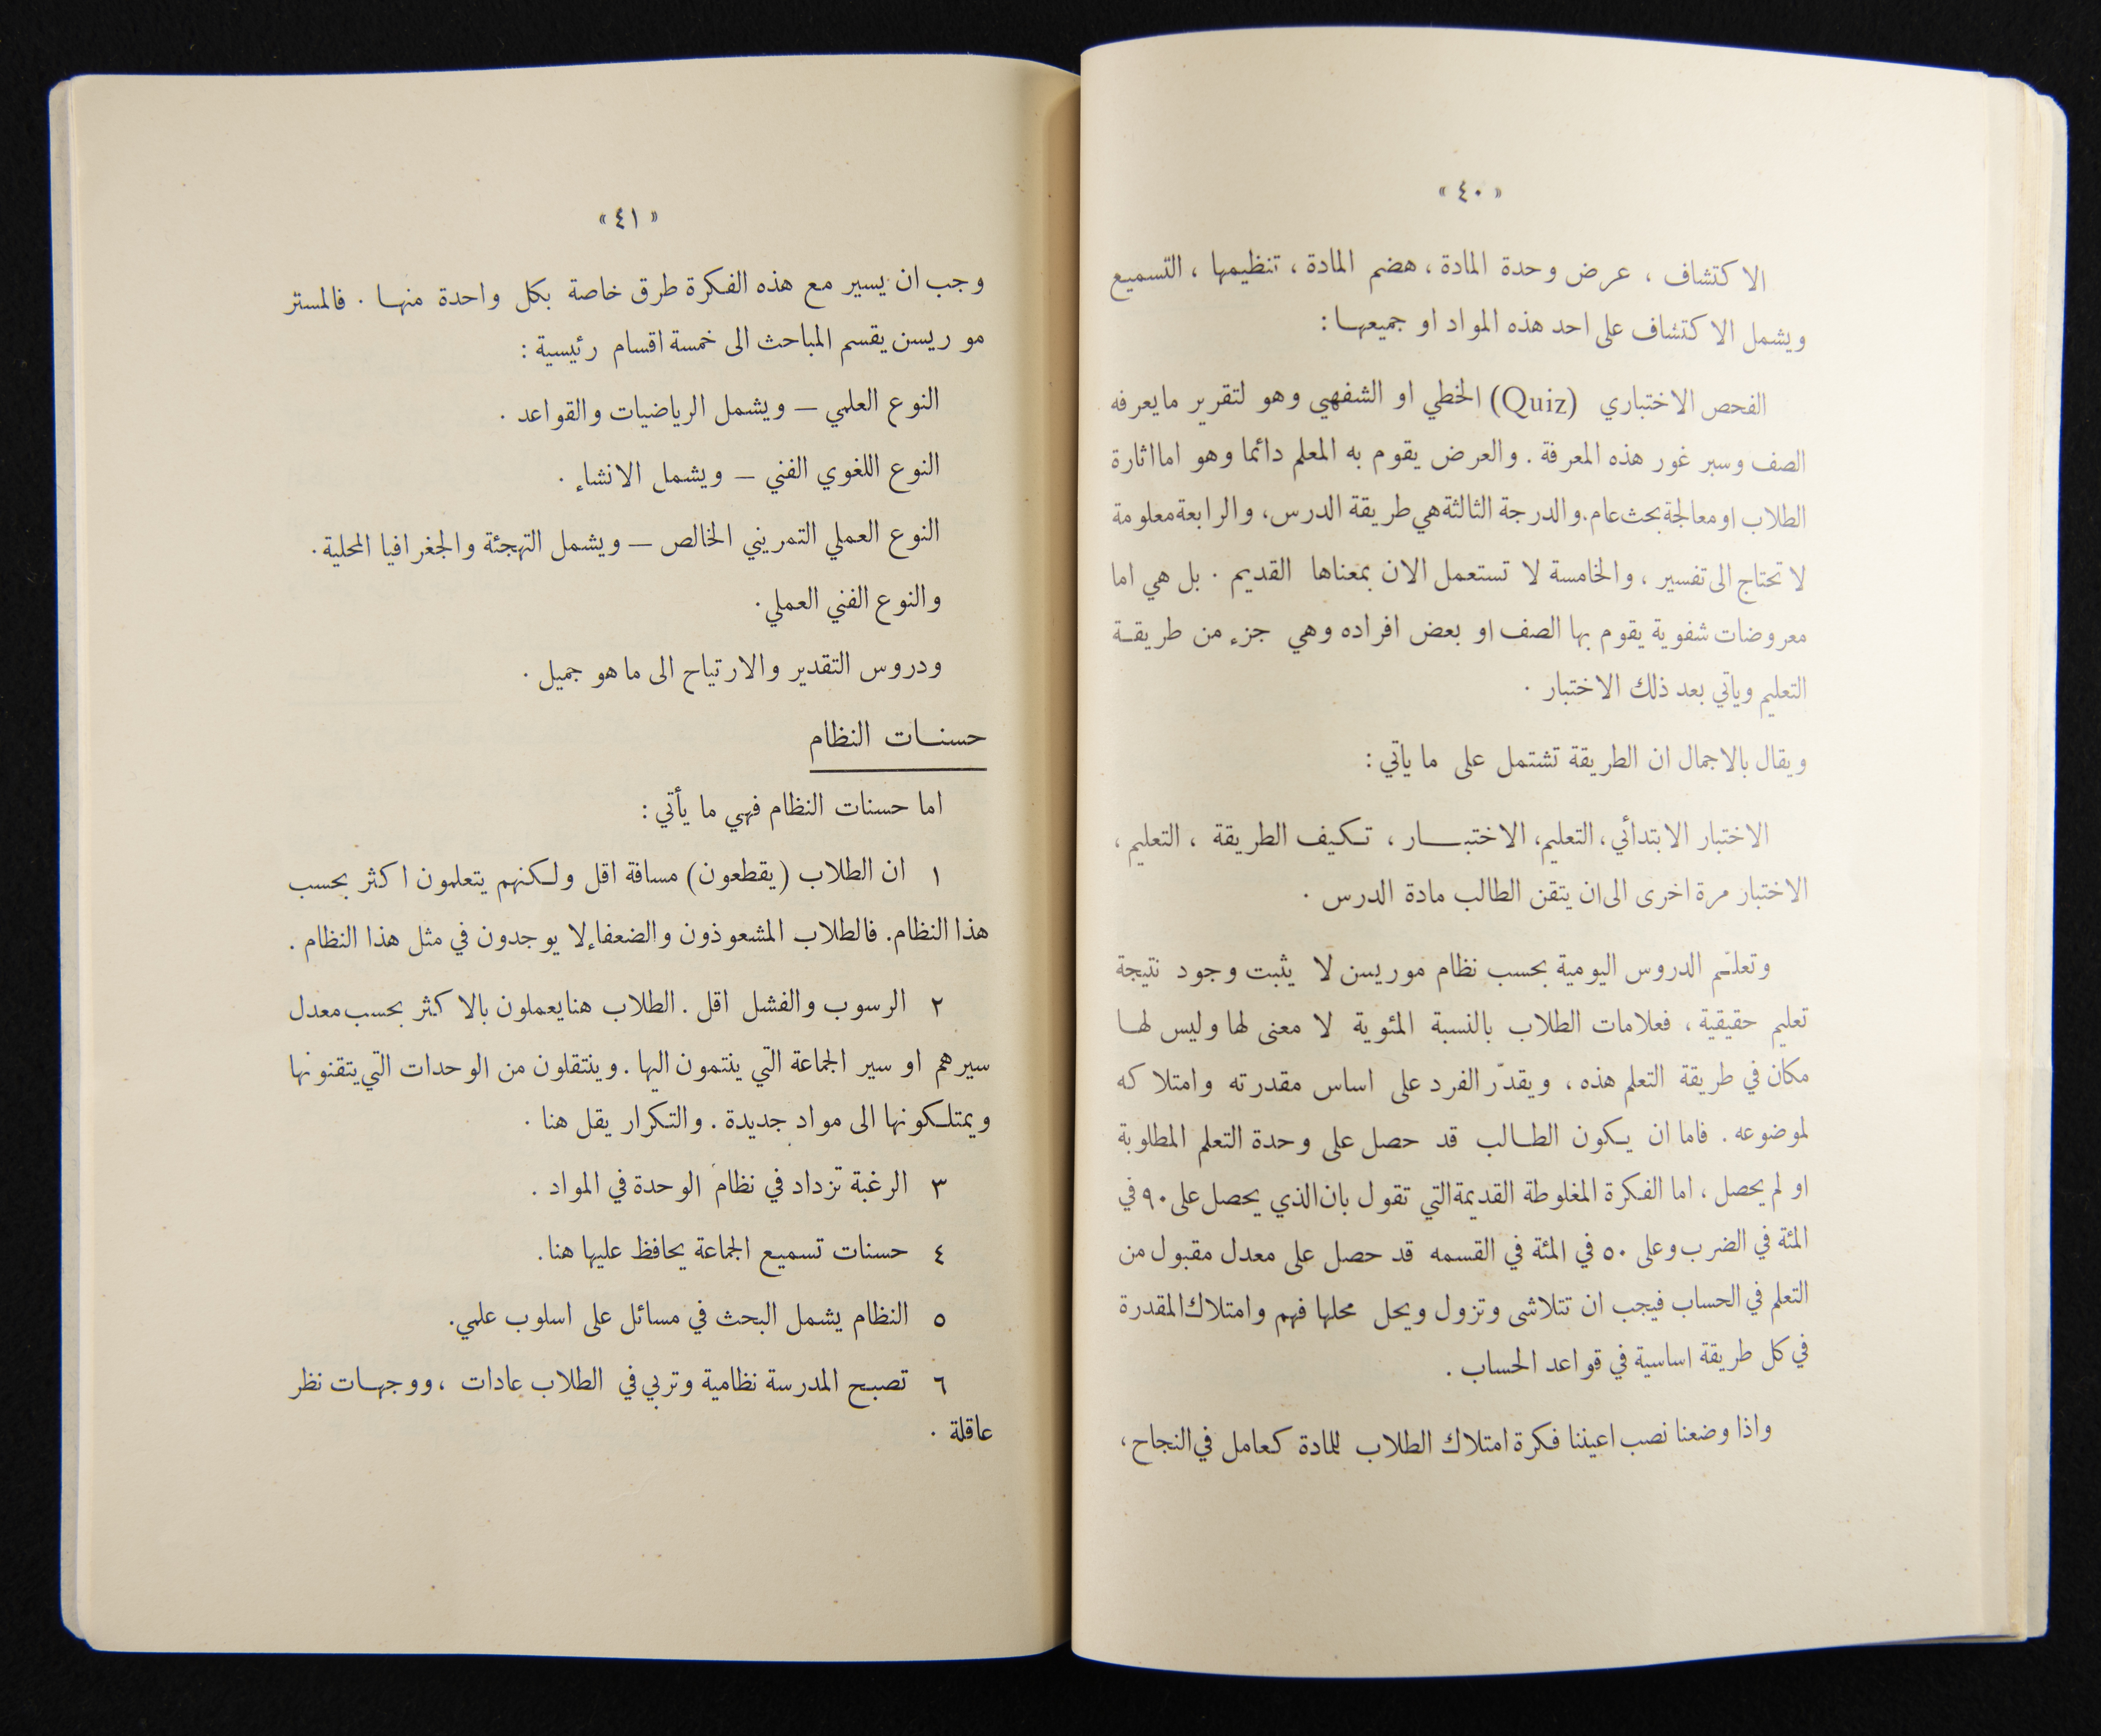 « ٤٠ »
الاكتشاف ، عرض وحدة المادة ، هضم المادة ، تنظيمها ، التسميع
ويشمل الاكتشاف على احد هذه المواد او جميعهـا :
الفحص الاختباري (Quiz) الخطي او الشفهي وهو لتقرير مايعرفه
الصف وسبر غور هذه المعرفة . والعرض يقوم به المعلم دائما وهو امااثارة
الطلاب او معالجة بحث عام. والدرجة الثالثة هي طريقة الدرس، والرابعة معلومة
لا تحتاج الى تفسير ، والخامسة لا تستعمل الان بمعناها القديم . بل هي اما
معروضات شفوية يقوم بها الصف او بعض افراده وهي جزء من طريقـة
التعليم وياتي بعد ذلك الاختبار .
ويقال بالاجمال ان الطريقة تشتمل على ما ياتي :
الاختبار الابتدائي ، التعليم، الاختبـــار ، تـكيف الطريقة ، التعليم ،
الاختبار مرة اخرى الى ان يتقن الطالب مادة الدرس .
وتعلّم الدروس اليومية بحسب نظام موريسن لا يثبت وجود نتيجة
تعليم حقيقية ، فعلامات الطلاب بالنسبة المئوية لا معنى لها وليس لهـا
مكان في طريقة التعلم هذه ، ويقدّر الفرد على اساس مقدرته وامتلاكه
لموضوعه . فاما ان يـكون الطـالب قد حصل على وحدة التعلم المطلوبة
او لم يحصل ، اما الفـكرة المغلوطة القديمة التي تقول بان الذي يحصل على ٩٠ في
المئة في الضرب وعلى ٥٠ في المئة في القسمه قد حصل على معدل مقبول من
التعلم في الحساب فيجب ان تتلاشى وتزول ويحل محلها فهم وامتلاك المقدرة
في كل طريقة اساسية في قواعد الحساب .
واذا وضعنا نصب اعيننا فـكرة امتلاك الطلاب للمادة كعامل في النجاح ،
« ٤١ »
وجب ان يسير مع هذه الفـكرة طرق خاصة بكل واحدة منهـا . فالمستر
موريسن يقسم المباحث الى خمسة اقسام رئيسية :
النوع العلمي — ويشمل الرياضيات والقواعد .
النوع اللغوي الفني — ويشمل الانشاء .
النوع العملي التمريني الخالص — ويشمل التهجئة والجغرافيا المحلية .
والنوع الفني العملي .
ودروس التقدير والارتياح الى ما هو جميل .
حسنـات النظام
اما حسنات النظام فهي ما يأتي :
١ ان الطلاب (يقطعون) مسافة اقل ولـكنهم يتعلمون اكثر بحسب
هذا النظام. فالطلاب المشعوذون والضعفاء لا يوجدون في مثل هذا النظام .
٢ الرسوب والفشل اقل . الطلاب هنا يعملون بالاكثر بحسب معدل
سيرهم او سير الجماعة التي ينتمون اليها . وينتقلون من الوحدات التي يتقنونها
ويمتلـكونها الى مواد جديدة . والتـكرار يقل هنا .
٣ الرغبة تزداد في نظام الوحدة في المواد .
٤ حسنات تسميع الجماعة يحافظ عليها هنا .
٥ النظام يشمل البحث في مسائل على اسلوب علمي .
٦ تصبح المدرسة نظامية وتربي في الطلاب عادات ، ووجهـات نظر
عاقلة .